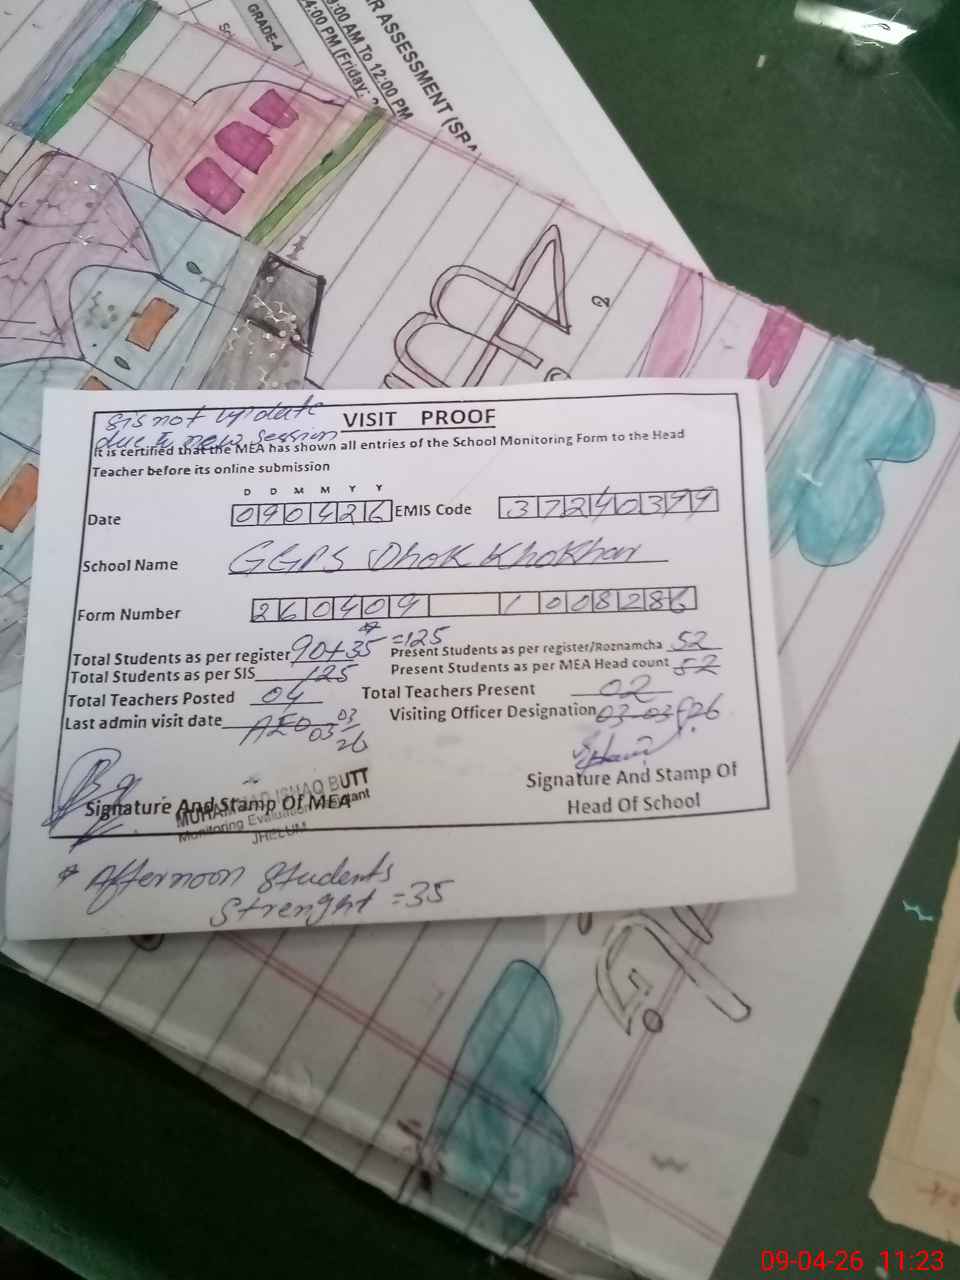 R ASSESSMENT (SBA
9:00 AM To 12:00 PM
4:00 PM (Friday: 2
GRADE-4
sis not update
due to new session
VISIT PROOF
It is certified that the MEA has shown all entries of the School Monitoring Form to the Head
Teacher before its online submission
D D M M Y Y
Date 090426 EMIS Code 37240399
School Name GGPS Dhok Khokhar
Form Number 260409 1008286
Total Students as per register 90+35* =125 Present Students as per register/Roznamcha 52
Total Students as per SIS 125 Present Students as per MEA Head count 52
Total Teachers Posted 04 Total Teachers Present 02
Last admin visit date AEO 03/03/26 Visiting Officer Designation 03-03-26
Signature And Stamp Of MEA
MUHAMMAD ISHAQ BUTT
Monitoring Evaluation
JHELUM
Signature And Stamp Of
Head Of School
* Afternoon Students
Strenght =35
09-04-26 11:23